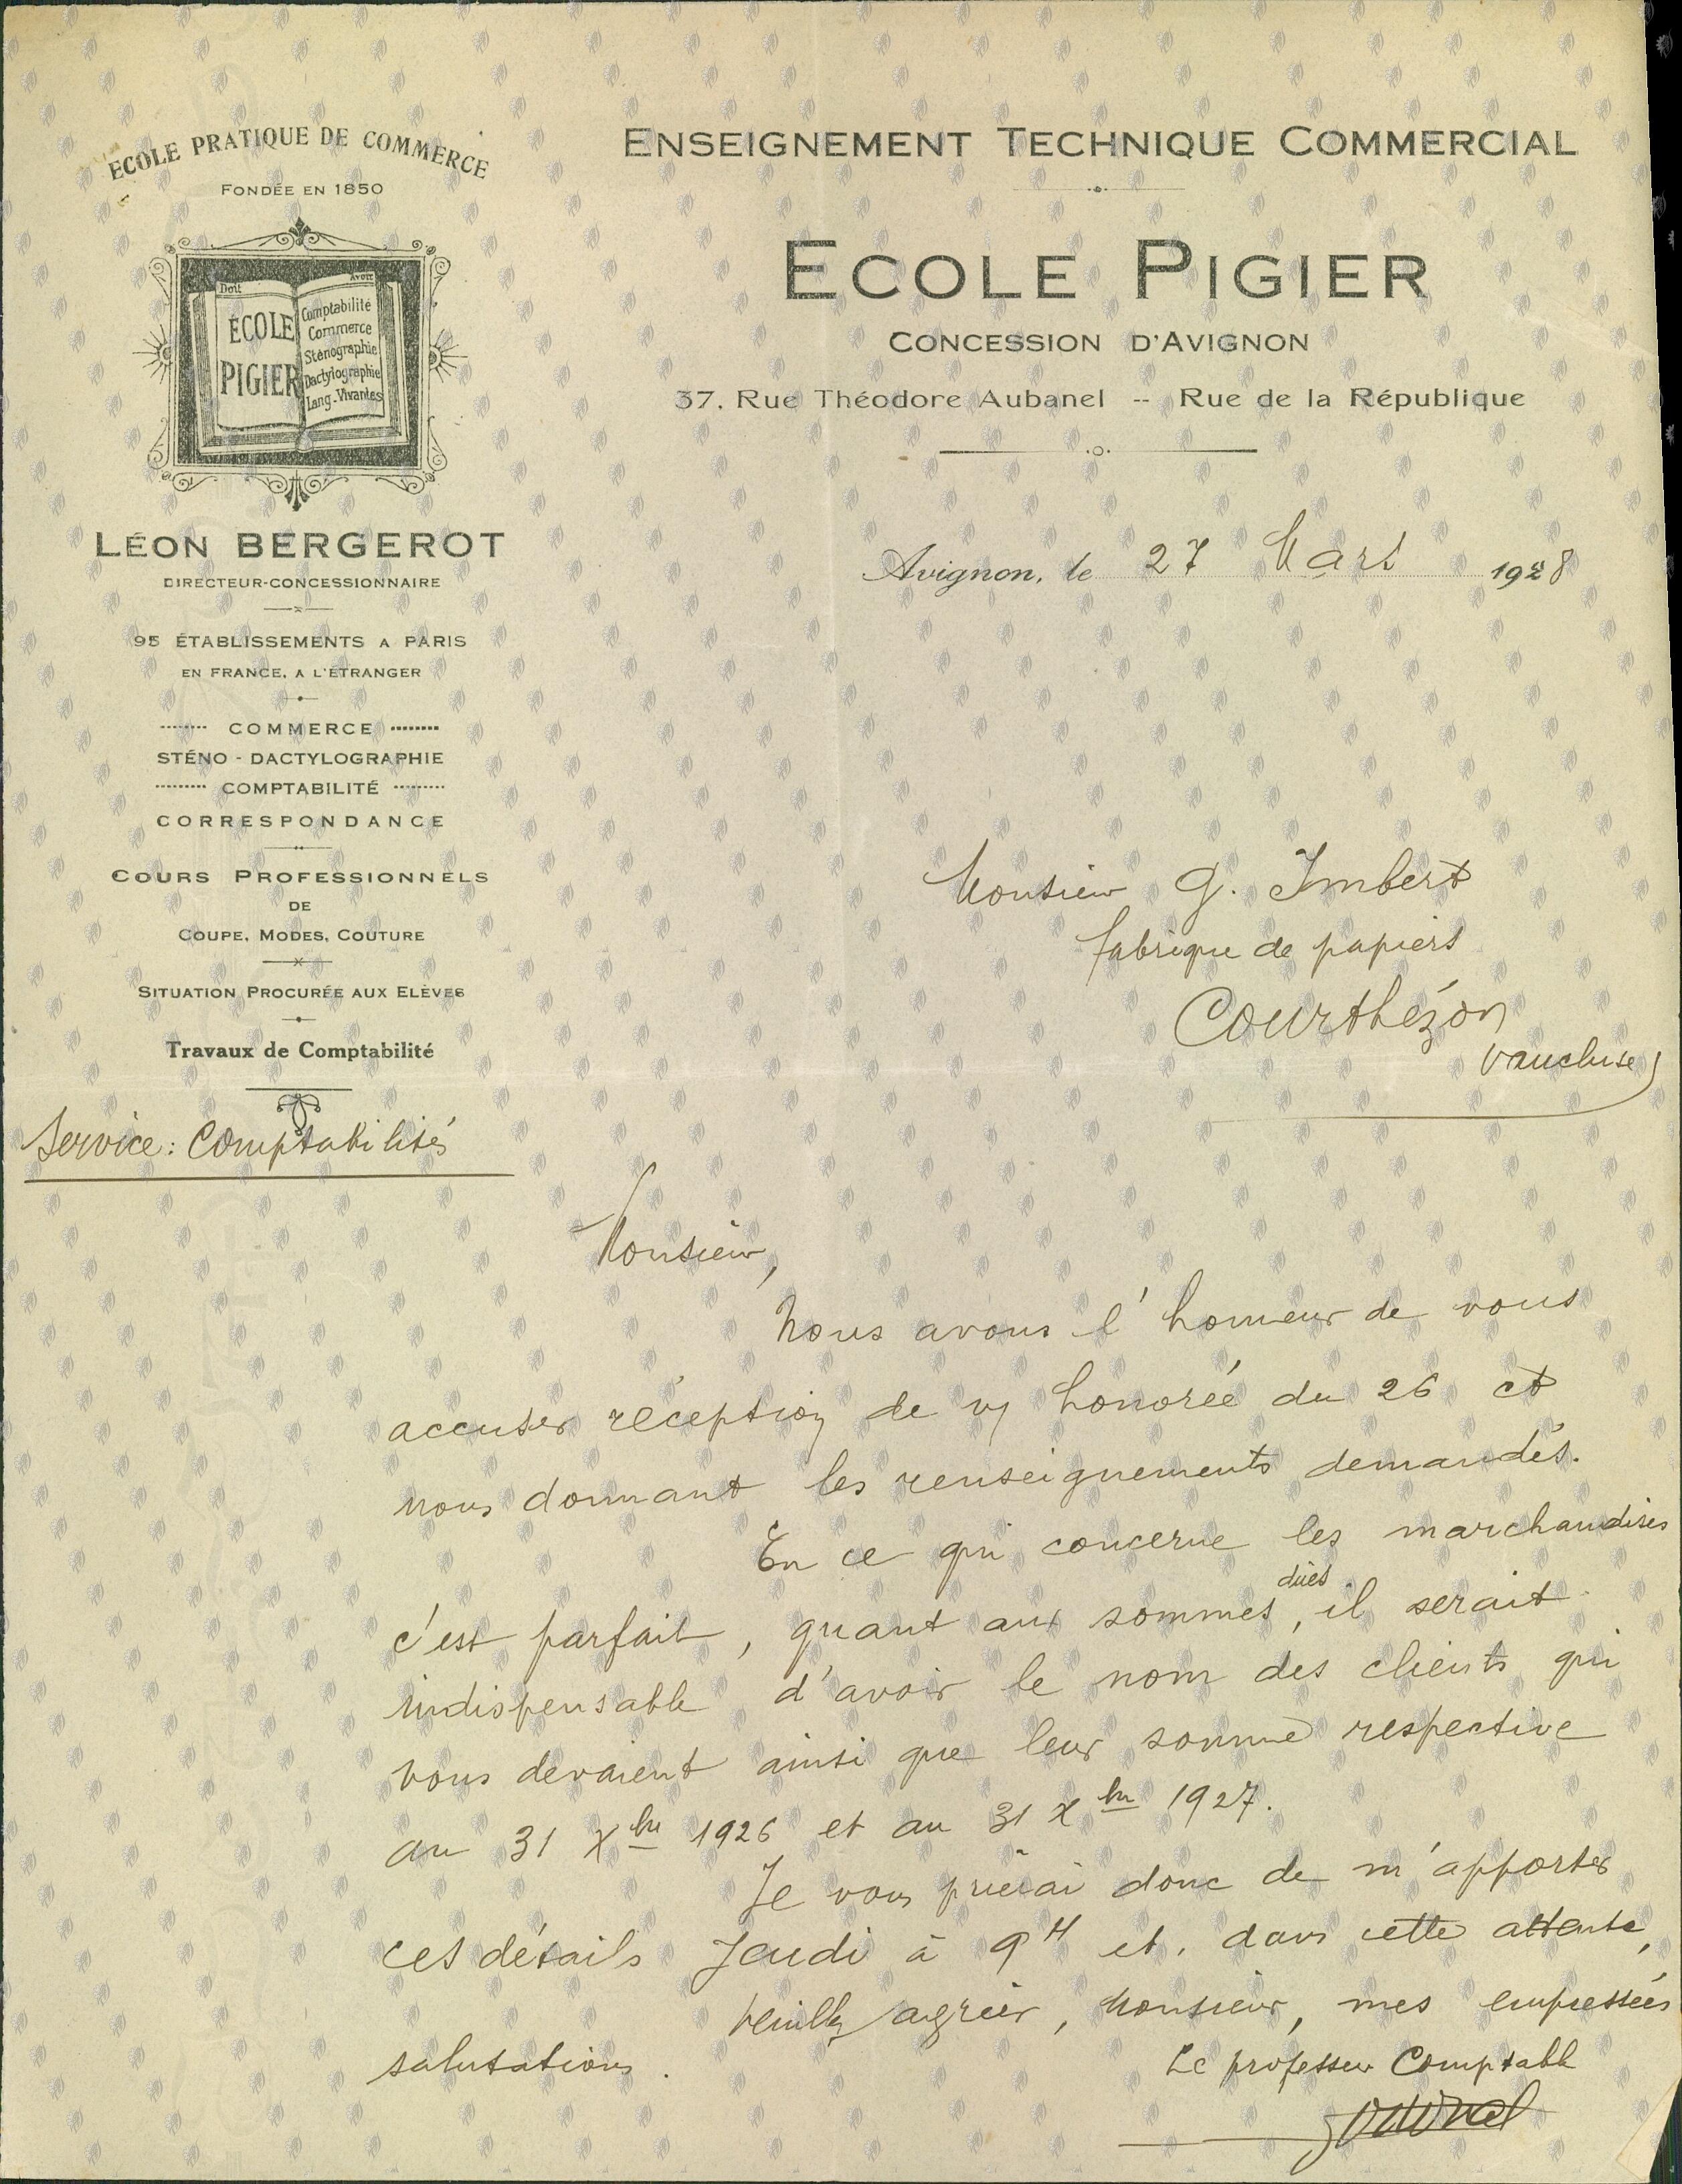 ECOLE PRATIQUE DE COMMERCE
FONDÉE EN 1850
Doit
Avoir
ÉCOLE
PIGIER
Comptabilité
Commerce
Sténographie
Dactylographie
Lang. Vivantes
LÉON BERGEROT
DIRECTEUR-CONCESSIONNAIRE
95 ÉTABLISSEMENTS A PARIS
EN FRANCE, A L'ÉTRANGER
COMMERCE
STÉNO - DACTYLOGRAPHIE
COMPTABILITÉ
CORRESPONDANCE
COURS PROFESSIONNELS
DE
COUPE, MODES, COUTURE
SITUATION PROCURÉE AUX ELÈVES
Travaux de Comptabilité
Service : Comptabilités
ENSEIGNEMENT TECHNIQUE COMMERCIAL
ECOLE PIGIER
CONCESSION D'AVIGNON
37, Rue Théodore Aubanel -- Rue de la République
Avignon, le 27 Mars 1928
Monsieur G. Imbert
fabrique de papiers
Courthézon
Vaucluse
Monsieur,
Nous avons l'honneur de vous
accuser réception de v/ honorée du 26 ct
nous donnant les renseignements demandés.
En ce qui concerne les marchandises
c'est parfait, quant aux sommes dûes, il serait
indispensable d'avoir le nom des clients qui
vous devaient ainsi que leur somme respective
au 31 Xbre 1926 et au 31 Xbre 1927.
Je vous prierai donc de m'apporter
ces détails Jeudi à 9H et, dans cette attente,
Veuillez agréer, Monsieur, mes empressées
salutations.
Le professeur Comptable